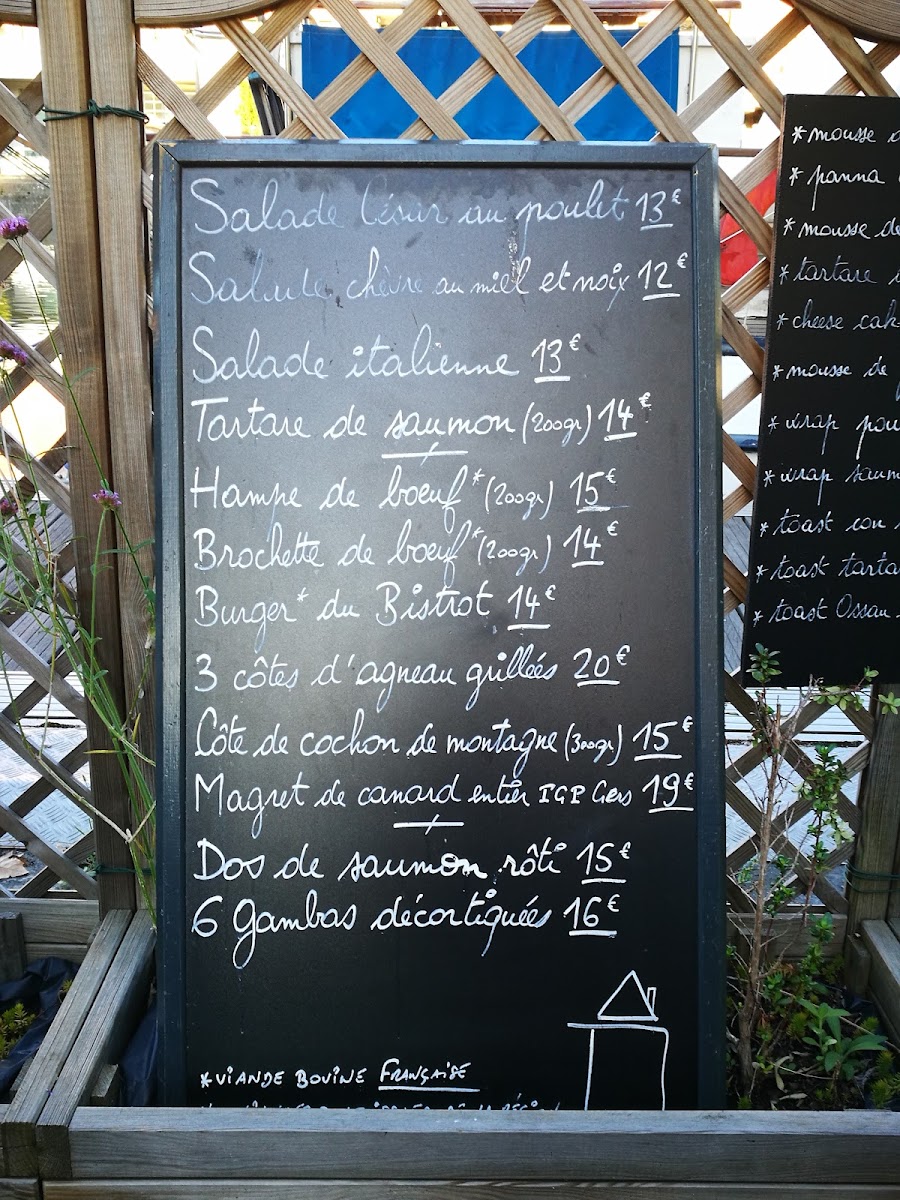 Salade César au poulet 13€
Salade chèvre au miel et noix 12€
Salade italienne 13€
Tartare de saumon (200gr) 14€
Hampe de boeuf* (200gr) 15€
Brochette de boeuf* (200gr) 14€
Burger* du Bistrot 14€
3 côtes d'agneau grillées 20€
Côte de cochon de montagne (300gr) 15€
Magret de canard entier IGP Gers 19€
Dos de saumon rôti 15€
6 Gambas décortiquées 16€
*VIANDE BOVINE FRANÇAISE
*mousse
*panna
*mousse de
*tartare
*cheese cak
*mousse de
*wrap pou
*wrap saum
*toast con
*toast tarta
*toast Ossau